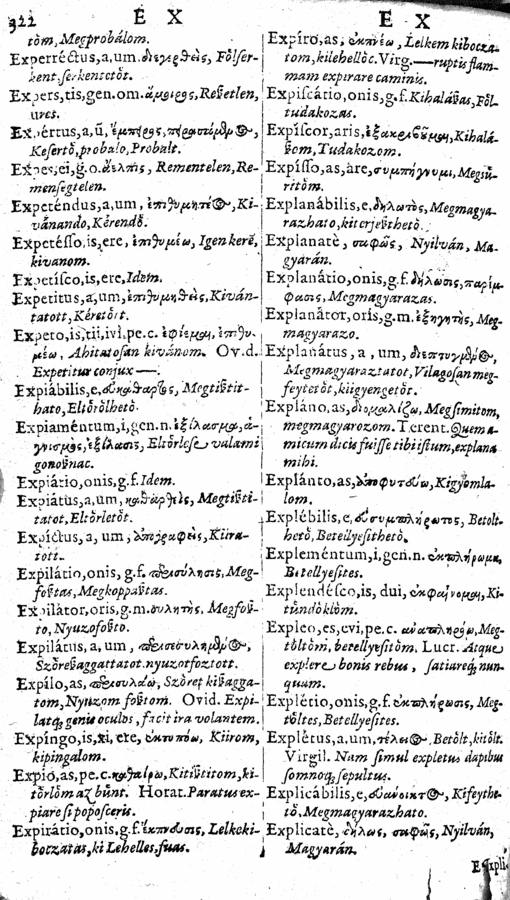 322 E X
tòm, Megprobálom.
Experréctus, a, um. διεγερθεὶς, Fölſer-
kent, ſerkentetöt.
Expers, tis, gen. om. ἄμοιρος, Reſetlen,
ures.
Expértus, a, ũ, ἔμπειρος,
Keſertö, probalo, Probalt.
ἀελπὴς, Rementelen, Re-
menſegtelen.
Expeténdus, a, um, ἐπιθυμητέος, Ki-
vánando, Kerendö.
Expetéſſo, is, ere, ἐπιθυμέω, Igen kerë,
kivanom.
Expetíſco, is, ere, Idem.
Expetitus, a, um, ἐπιθυμηθεὶς, Kiván-
tatott, Kéretöt.
Expeto, is, tii, ivi, pe. c. ἐφίεμαι, ἐπιθυ-
μέω, Ahitatoſan kivánom. Ov. d.
Expetitur conjux —.
Expiábilis, e, Megtiſtit-
hato, Eltörölhetö.
Expiaméntum, i, gen. n. ἐξίλασμα, ἁ-
γνισμὸς, ἐξίλασις, Eltörleſe valami
gonoſnac.
Expiátio, onis, g. f. Idem.
Expiátus, a, um, καθαρθεὶς, Megtiſti-
tatot, Eltörletöt.
Expíctus, a, um, Kiira-
tott.
Expilátio, onis, g. f. περισύλησις, Meg-
foſtas, Megkoppaſtas.
Expilàtor, oris, g. m. συλητὴς, Megfoſ-
to, Nyuzofoſto.
Expilátus, a, um,
Szöreſaggattatot. nyuzotfoztott.
Expílo, as, περισυλάω, Szöret kiſagga-
tom, Nyuzom foſtom. Ovid. Expi-
latq; genis oculos, facit ira volantem.
Expíngo, is, xi, ere, ἐκτυπόω, Kiirom,
kipingalom.
Expio, as, pe. c. καθαίρω, Kitiſtitom, ki-
törlöm az bünt. Horat. Paratus ex-
piare ſi popoſceris.
Expirátio, onis, g. f. ἔκπνευσις, Lelkeki-
boczatas, ki Lehelles, fuas.
E X
Expíro, as, ἐκπνέω, Lelkem kibocza-
tom, kilehellöc. Virg. — ruptis flam-
mam expirare caminis.
Expiſcátio, onis, g. f. Kihaláſas, Föl-
tudakozas.
Expíſcor, aris, ἐξακριβοῦμαι, Kihalá-
ſom, Tudakozom.
Expíſſo, as, are, συμπήγνυμι, Megſü-
ritöm.
Explanábilis, e, δηλωτὸς, Megmagya-
razhato, kiterjeſthetö.
Explanatè, σαφῶς, Nyilván, Ma-
gyarán.
Explanátio, onis, g. f. δήλωσις, παρίμ-
φασις, Megmagyarazas.
Explanátor, oris, g. m. ἐξηγητὴς, Meg-
magyarazo.
Explanátus, a, um,
Megmagyaraztatot, Vilagoſan meg-
feytetöt, kiigyengetöt.
Expláno, as, διομαλίζω, Megſimitom,
megmagyarozom. Terent. Quem a-
micum dicis fuiſſe tibi iſtum, explana
mihi.
Explánto, as, ἀποφυτεύω, Kigyomla-
lom.
Explébilis, e, εὐσυμπλήρωτος, Betölt-
hetö, Betellyeſithetö.
Expleméntum, i, gen. n. ἐκπλήρωμα,
Betellyeſites.
Explendéſco, is, dui, ἐκφαίνομαι, Ki-
tündöklöm.
Expleo, es, evi, pe. c. ἀναπληρόω, Meg-
töltöm, betellyeſitöm. Lucr. Atque
explere bonis rebus, ſatiareq; nun-
quam.
Explétio, onis, g. f. ἐκπλήρωσις, Meg-
töltes, Betellyeſites.
Explétus, a, um, τέλειος, Betölt, kitölt.
Virgil. Nam ſimul expletus dapibus
ſomnoq; ſepultus.
Explicábilis, e, εὐανοικτος, Kifeythe-
tö, Megmagyarazhato.
Explicatè, δήλως, σαφῶς, Nyilván,
Magyarán.
Expli-